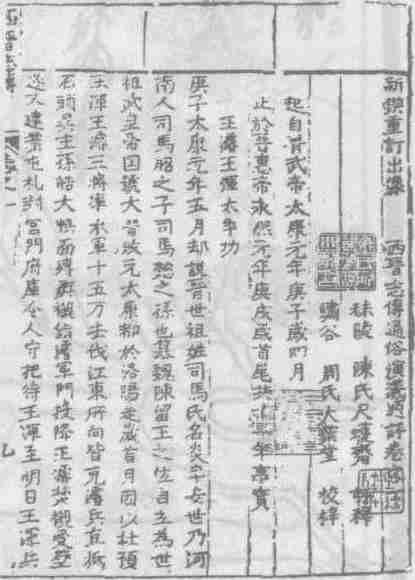 新鐫重訂出像 西晉志傳通俗演義題評卷
秣陵 陳氏尺蠖齋 評釋
繡谷 周氏大業堂 校梓
起自晉武帝太康元年庚子歲四月
止於晉惠帝永熙元年庚戌歲首尾共十一年事實
王濬王渾大爭功
庚子太康元年五月却說晉世祖姓司馬氏名炎字安世乃河
南人司馬昭之子司馬懿之孫也篡魏陳留王之位自立為世
祖武皇帝國號大晉改元太康都於洛陽是歲首月因以杜預
王渾王濬三將準水軍十五万去伐江東所向皆克濬兵直抵
石頭吳主孫皓大懼面縛輿櫬詣濬軍門投降王濬焚櫬受璧
送入建業屯札封宮門府庫令人守把待王渾至明日王渾兵